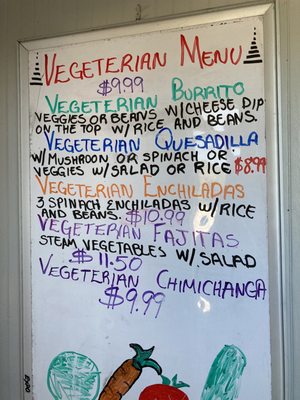 VEGETERIAN MENU
$9.99
VEGETERIAN BURRITO
VEGGIES OR BEANS W/CHEESE DIP
ON THE TOP W/RICE AND BEANS.
VEGETERIAN QUESADILLA
W/MUSHROON OR SPINACH OR
VEGGIES W/SALAD OR RICE $8.99
VEGETERIAN ENCHILADAS
3 SPINACH ENCHILADAS W/RICE
AND BEANS. $10.99
VEGETERIAN FAJITAS
STEAM VEGETABLES W/SALAD
$11.50
VEGETERIAN CHIMICHANGA
$9.99